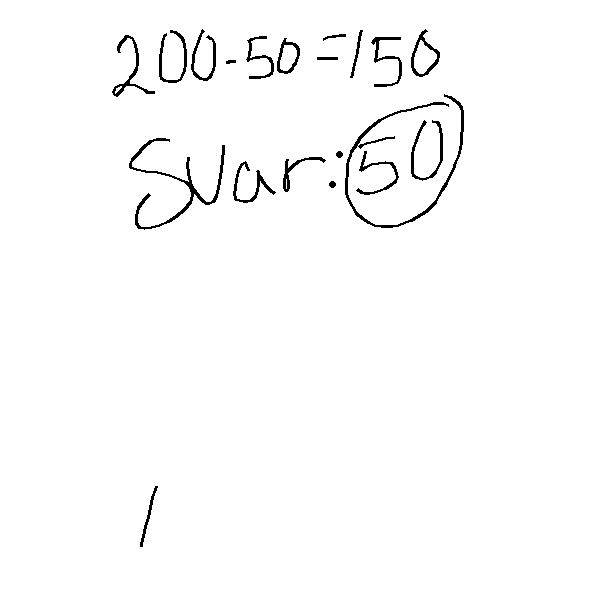 200-50=150
Svar: 50
/